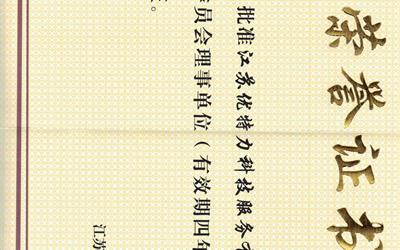 荣誉证书
批准江苏优特力科技服务
员会理事单位（有效期四年
。
江苏